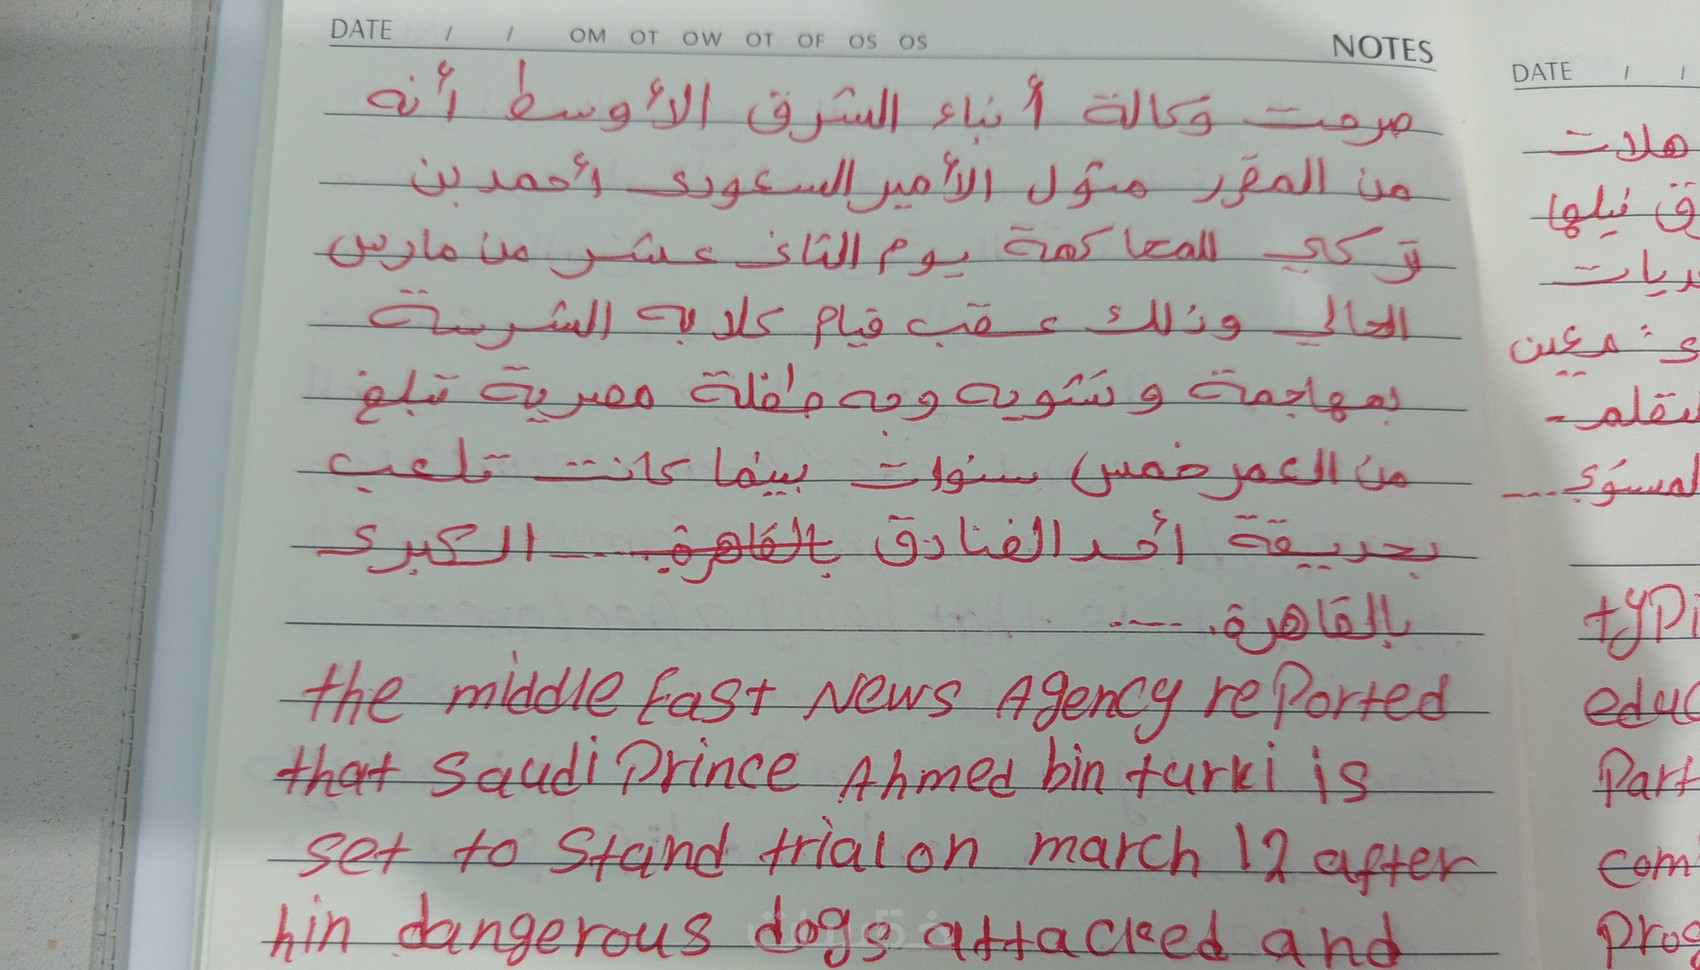 DATE / / OM OT OW OT OF OS OS NOTES
صرحت وكالة أنباء الشرق الأوسط أنه
من المقرر مثول الأمير السعودى أحمد بن
تركي للمحاكمة يوم الثانى عشر من مارس
الحالي وذلك عقب قيام كلابه الشرسة
بمهاجمة وتشويه وجه طفلة مصرية تبلغ
من العمر خمس سنوات بينما كانت تلعب
بحديقة أحد الفنادق بالقاهرة الكبرى
بالقاهرة. ....
the middle East News Agency reported
that Saudi Prince Ahmed bin turki is
set to Stand trial on march 12 after
hin dangerous dogs attacked and
DATE / /
هلات
ق نيلها
ديات
معين
لمستوى ....
tyPi
educ
Part
com
Prog